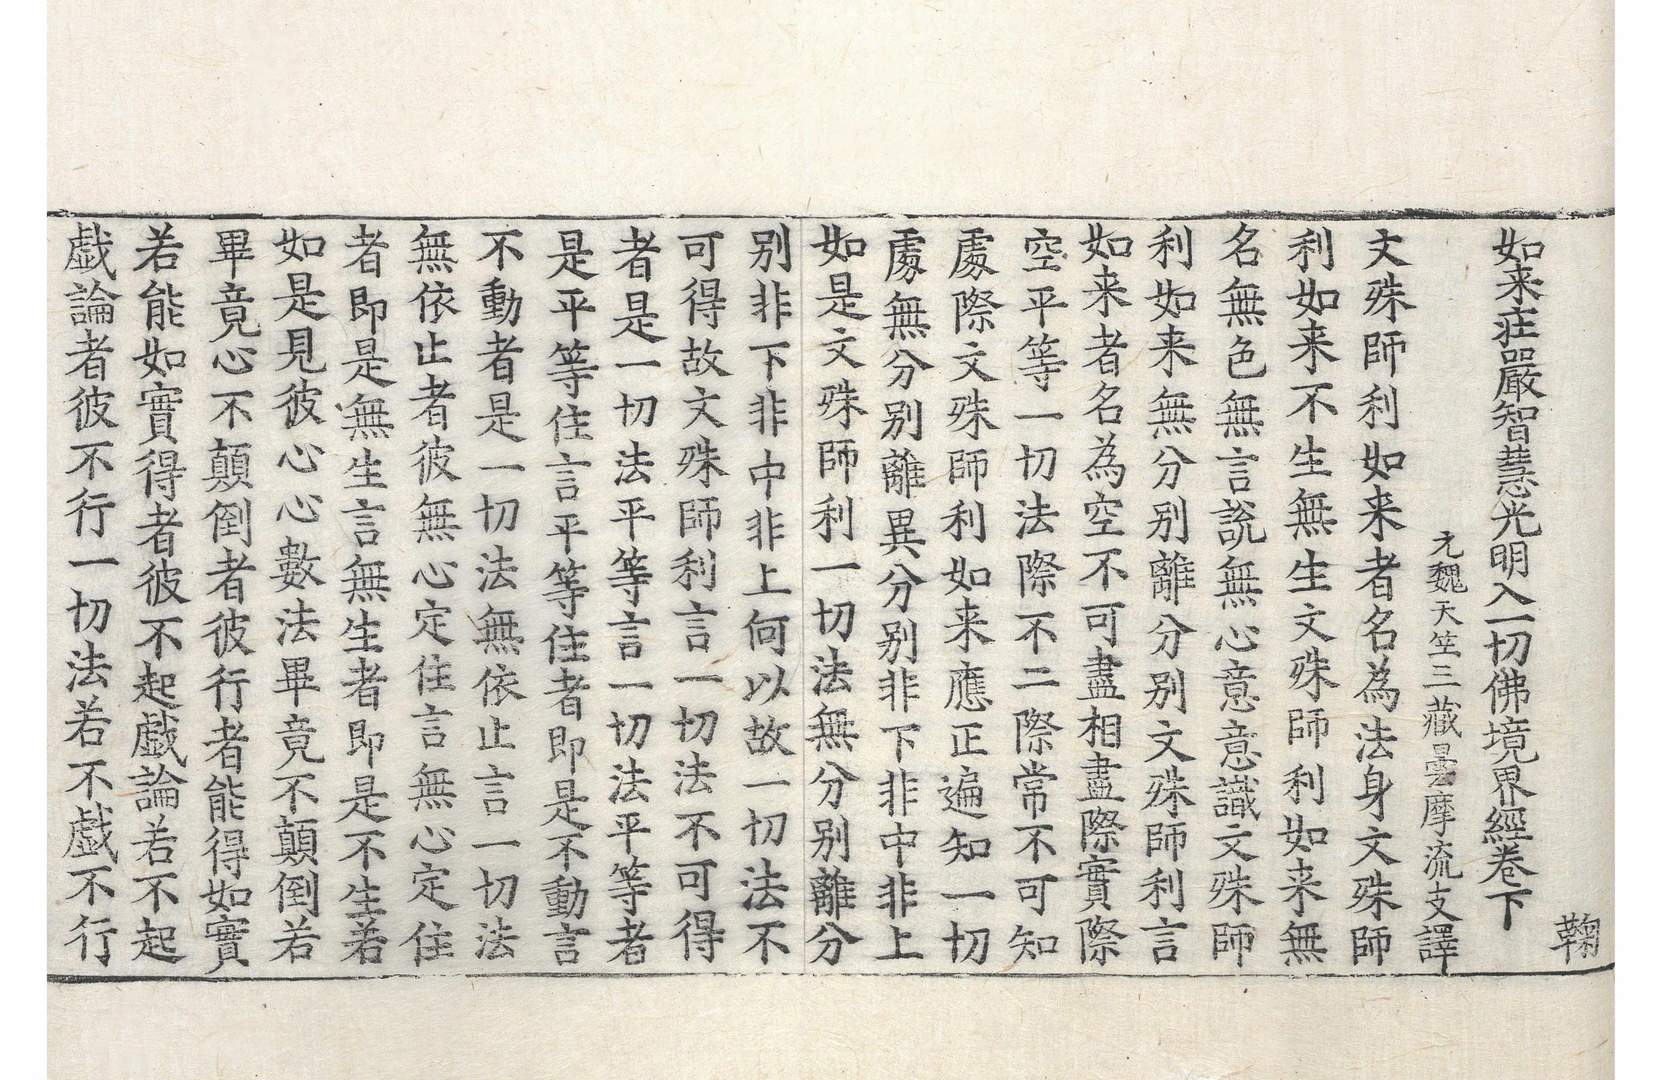 鞠
如来莊嚴智慧光明入一切佛境界經卷下
元魏天竺三藏曇摩流支譯
文殊師利如来者名為法身文殊師
利如来不生無生文殊師利如来無
名無色無言說無心意意識文殊師
利如来無分別離分別文殊師利言
如来者名為空不可盡相盡際實際
空平等一切法際不二際常不可知
處際文殊師利如来應正遍知一切
處無分別離異分別非下非中非上
如是文殊師利一切法無分別離分
別非下非中非上何以故一切法不
可得故文殊師利言一切法不可得
者是一切法平等言一切法平等者
是平等住言平等住者即是不動言
不動者是一切法無依止言一切法
無依止者彼無心定住言無心定住
者即是無生言無生者即是不生若
如是見彼心心數法畢竟不顛倒若
畢竟心不顛倒者彼行者能得如實
若能如實得者彼不起戲論若不起
戲論者彼不行一切法若不戲不行